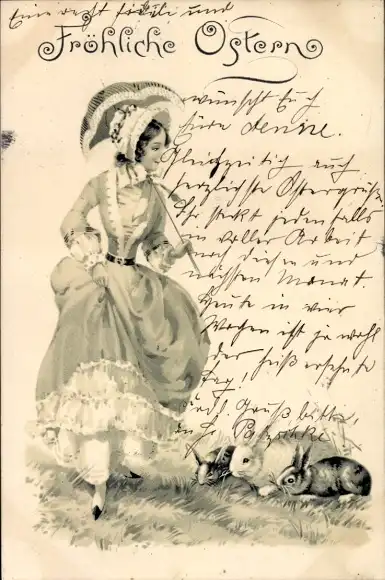 Eine recht fröhli und
Fröhliche Ostern
wünscht Euch
Eure
Gleichzeitig auch
herzlichste Ostergrüße.
Ihr steckt jedenfalls
in voller Arbeit
noch diesen und
nächsten Monat
Heute in vier
Wochen ist ja wohl
der heiß ersehnte
Tag!
Gruß bitte,
an